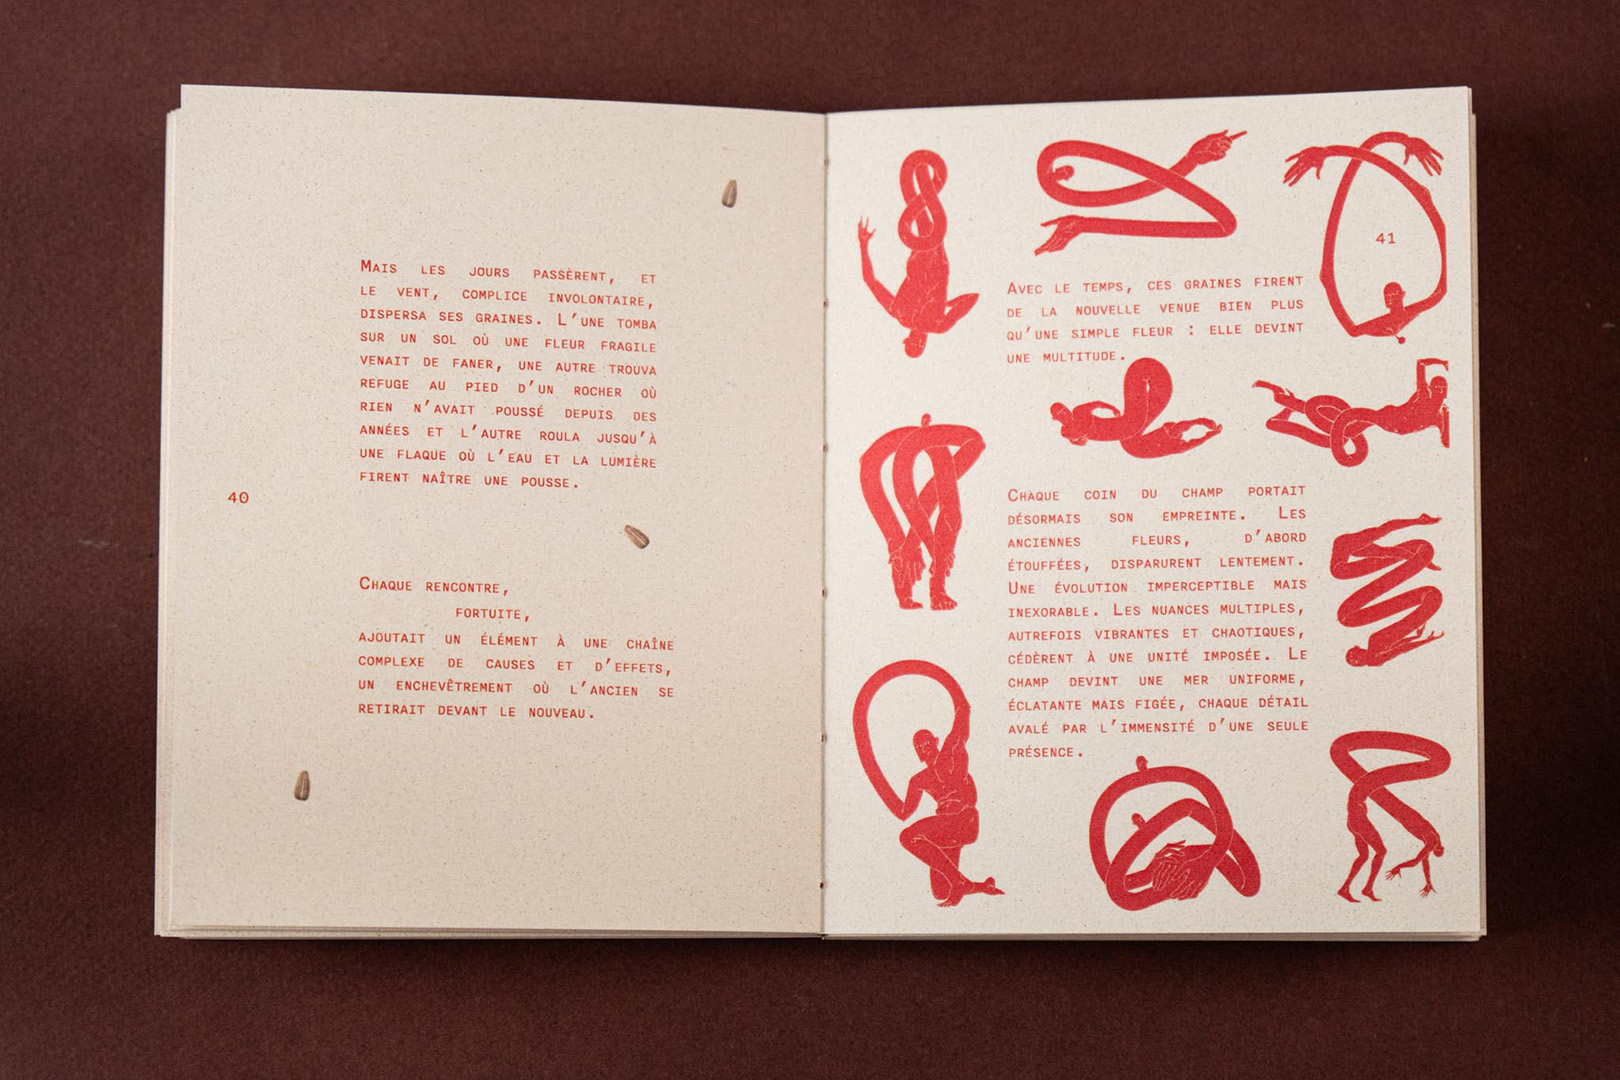 Mais les jours passèrent, et
le vent, complice involontaire,
dispersa ses graines. L'une tomba
sur un sol où une fleur fragile
venait de faner, une autre trouva
refuge au pied d'un rocher où
rien n'avait poussé depuis des
années et l'autre roula jusqu'à
une flaque où l'eau et la lumière
firent naître une pousse.
40
Chaque rencontre,
fortuite,
ajoutait un élément à une chaîne
complexe de causes et d'effets,
un enchevêtrement où l'ancien se
retirait devant le nouveau.
41
Avec le temps, ces graines firent
de la nouvelle venue bien plus
qu'une simple fleur : elle devint
une multitude.
Chaque coin du champ portait
désormais son empreinte. Les
anciennes fleurs, d'abord
étouffées, disparurent lentement.
Une évolution imperceptible mais
inexorable. Les nuances multiples,
autrefois vibrantes et chaotiques,
cédèrent à une unité imposée. Le
champ devint une mer uniforme,
éclatante mais figée, chaque détail
avalé par l'immensité d'une seule
présence.